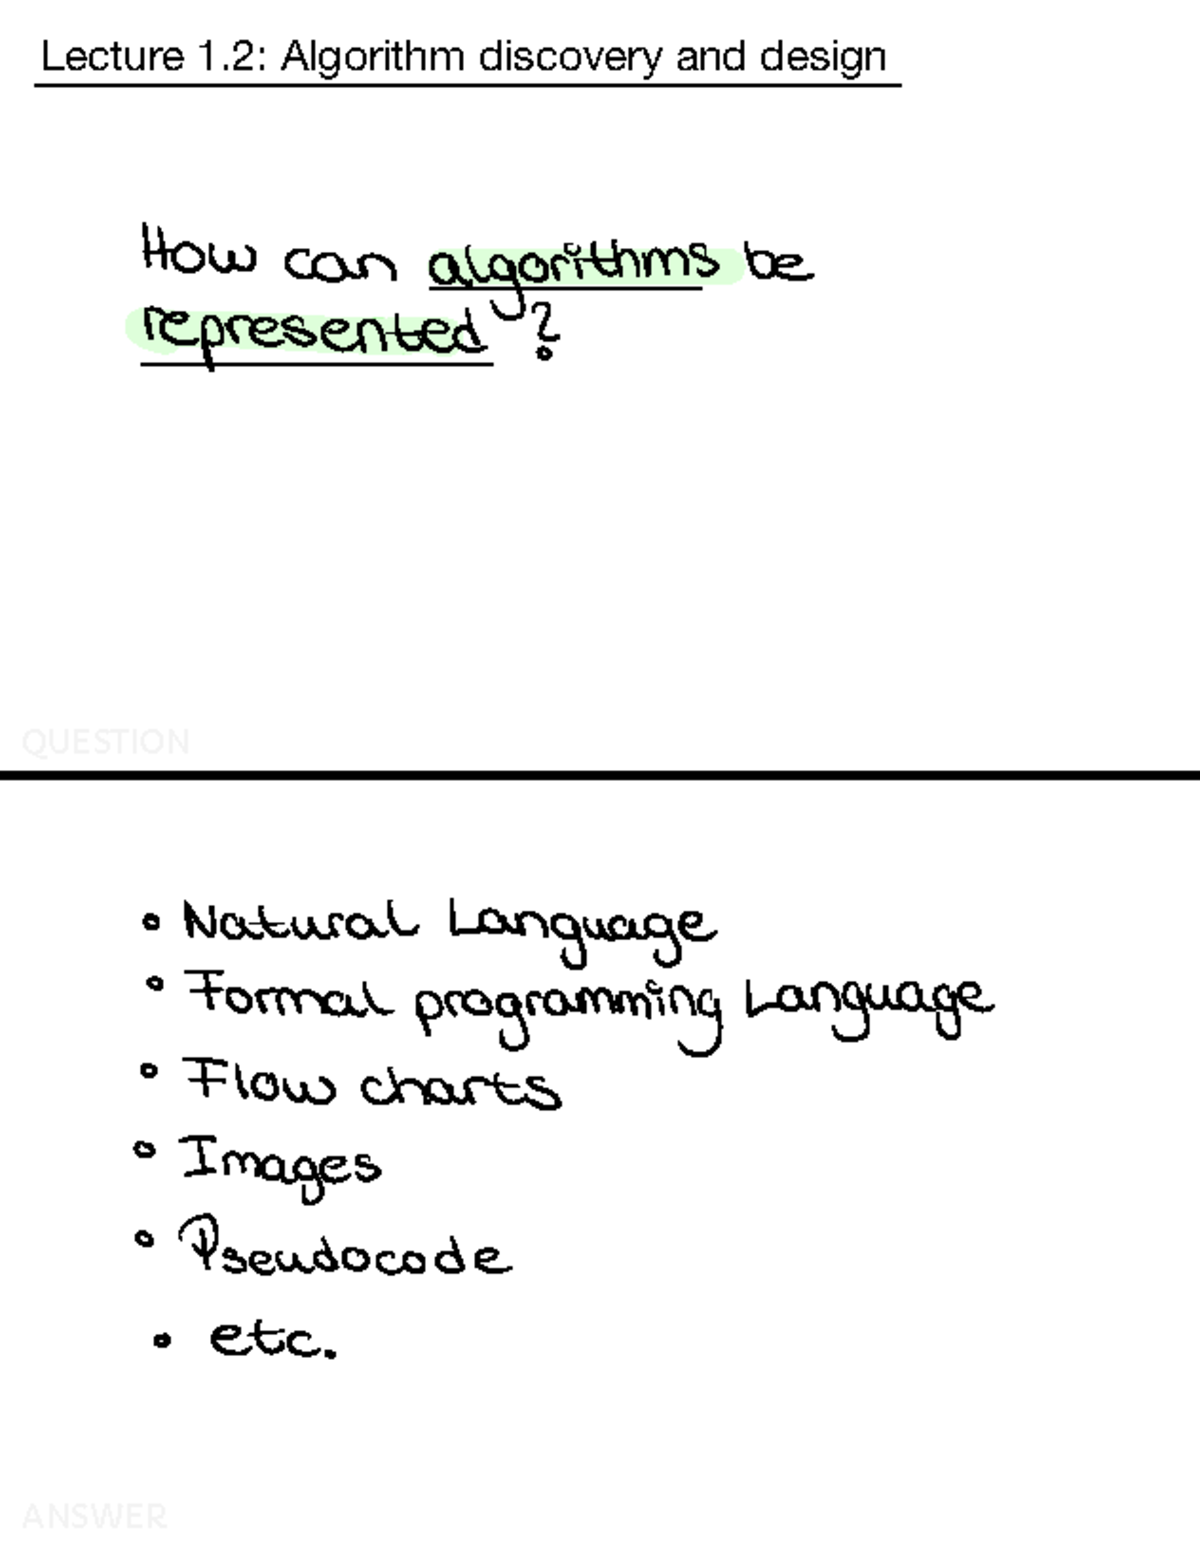 Lecture 1.2: Algorithm discovery and design
How can algorithms be
represented?
QUESTION
• Natural Language
• Formal programming Language
• Flow charts
• Images
• Pseudocode
• etc.
ANSWER